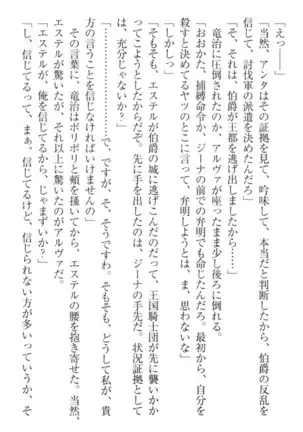 「えっ――」
「当然、アンタはその証拠を見て、吟味して、本当だと判断したから、伯爵の反乱を
信じて、討伐軍の派遣を決めたんだろ」
「そ、それは、伯爵が王都を逃げ出しましたから……」
竜治に圧倒されたのか、アルヴァが座ったまま少し後ろに倒れる。
「おおかた、捕縛命令か、ジーナの前での弁明でも命じたんだろ。最初から、自分を
殺すと決めてるヤツのとこに行って、弁明しようとは、ま、思わないな」
「しかしっ」
「そもそも、エステルが伯爵の城に逃げこんだのだって、王国騎士団が先に襲いかか
ってこようとしたからだぞ。先に手を出したのは、ジーナの手先だ。状況証拠として
は、充分じゃないか？」
「…………で、ですが、そ、そうですわ。そもそも、どうして私が、貴
方の言うことを信じなければいけませんの」
その言葉に、竜治はポリポリと頬を掻いてから、エステルの腰を抱き寄せた。当然、
エステルが驚いたが、それ以上に驚いたのがアルヴァだ。
「エステルが、俺を信じてるから、じゃまずいか？」
「し、信じてるって、まぁ、信じてるけど、信じられない方が多いっていうか、そ